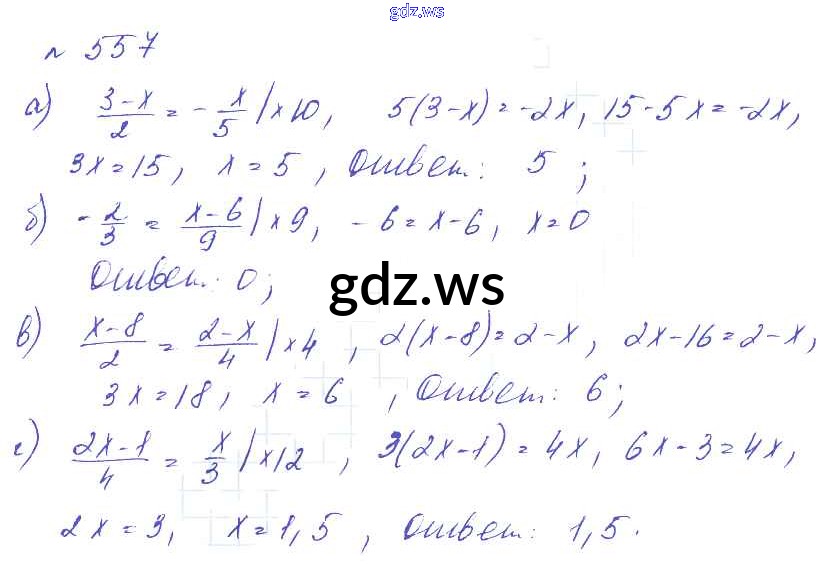 gdz.ws
№ 557
а) (3-x)/2 = - x/5 | ×10, 5(3-x) = -2x, 15-5x = -2x,
3x = 15, x = 5, Ответ: 5;
б) - 2/3 = (x-6)/9 | ×9, -6 = x-6, x = 0
Ответ: 0;
gdz.ws
в) (x-8)/2 = (2-x)/4 | ×4, 2(x-8) = 2-x, 2x-16 = 2-x,
3x = 18, x = 6, Ответ: 6;
г) (2x-1)/4 = x/3 | ×12, 3(2x-1) = 4x, 6x-3 = 4x,
2x = 3, x = 1,5, Ответ: 1,5.